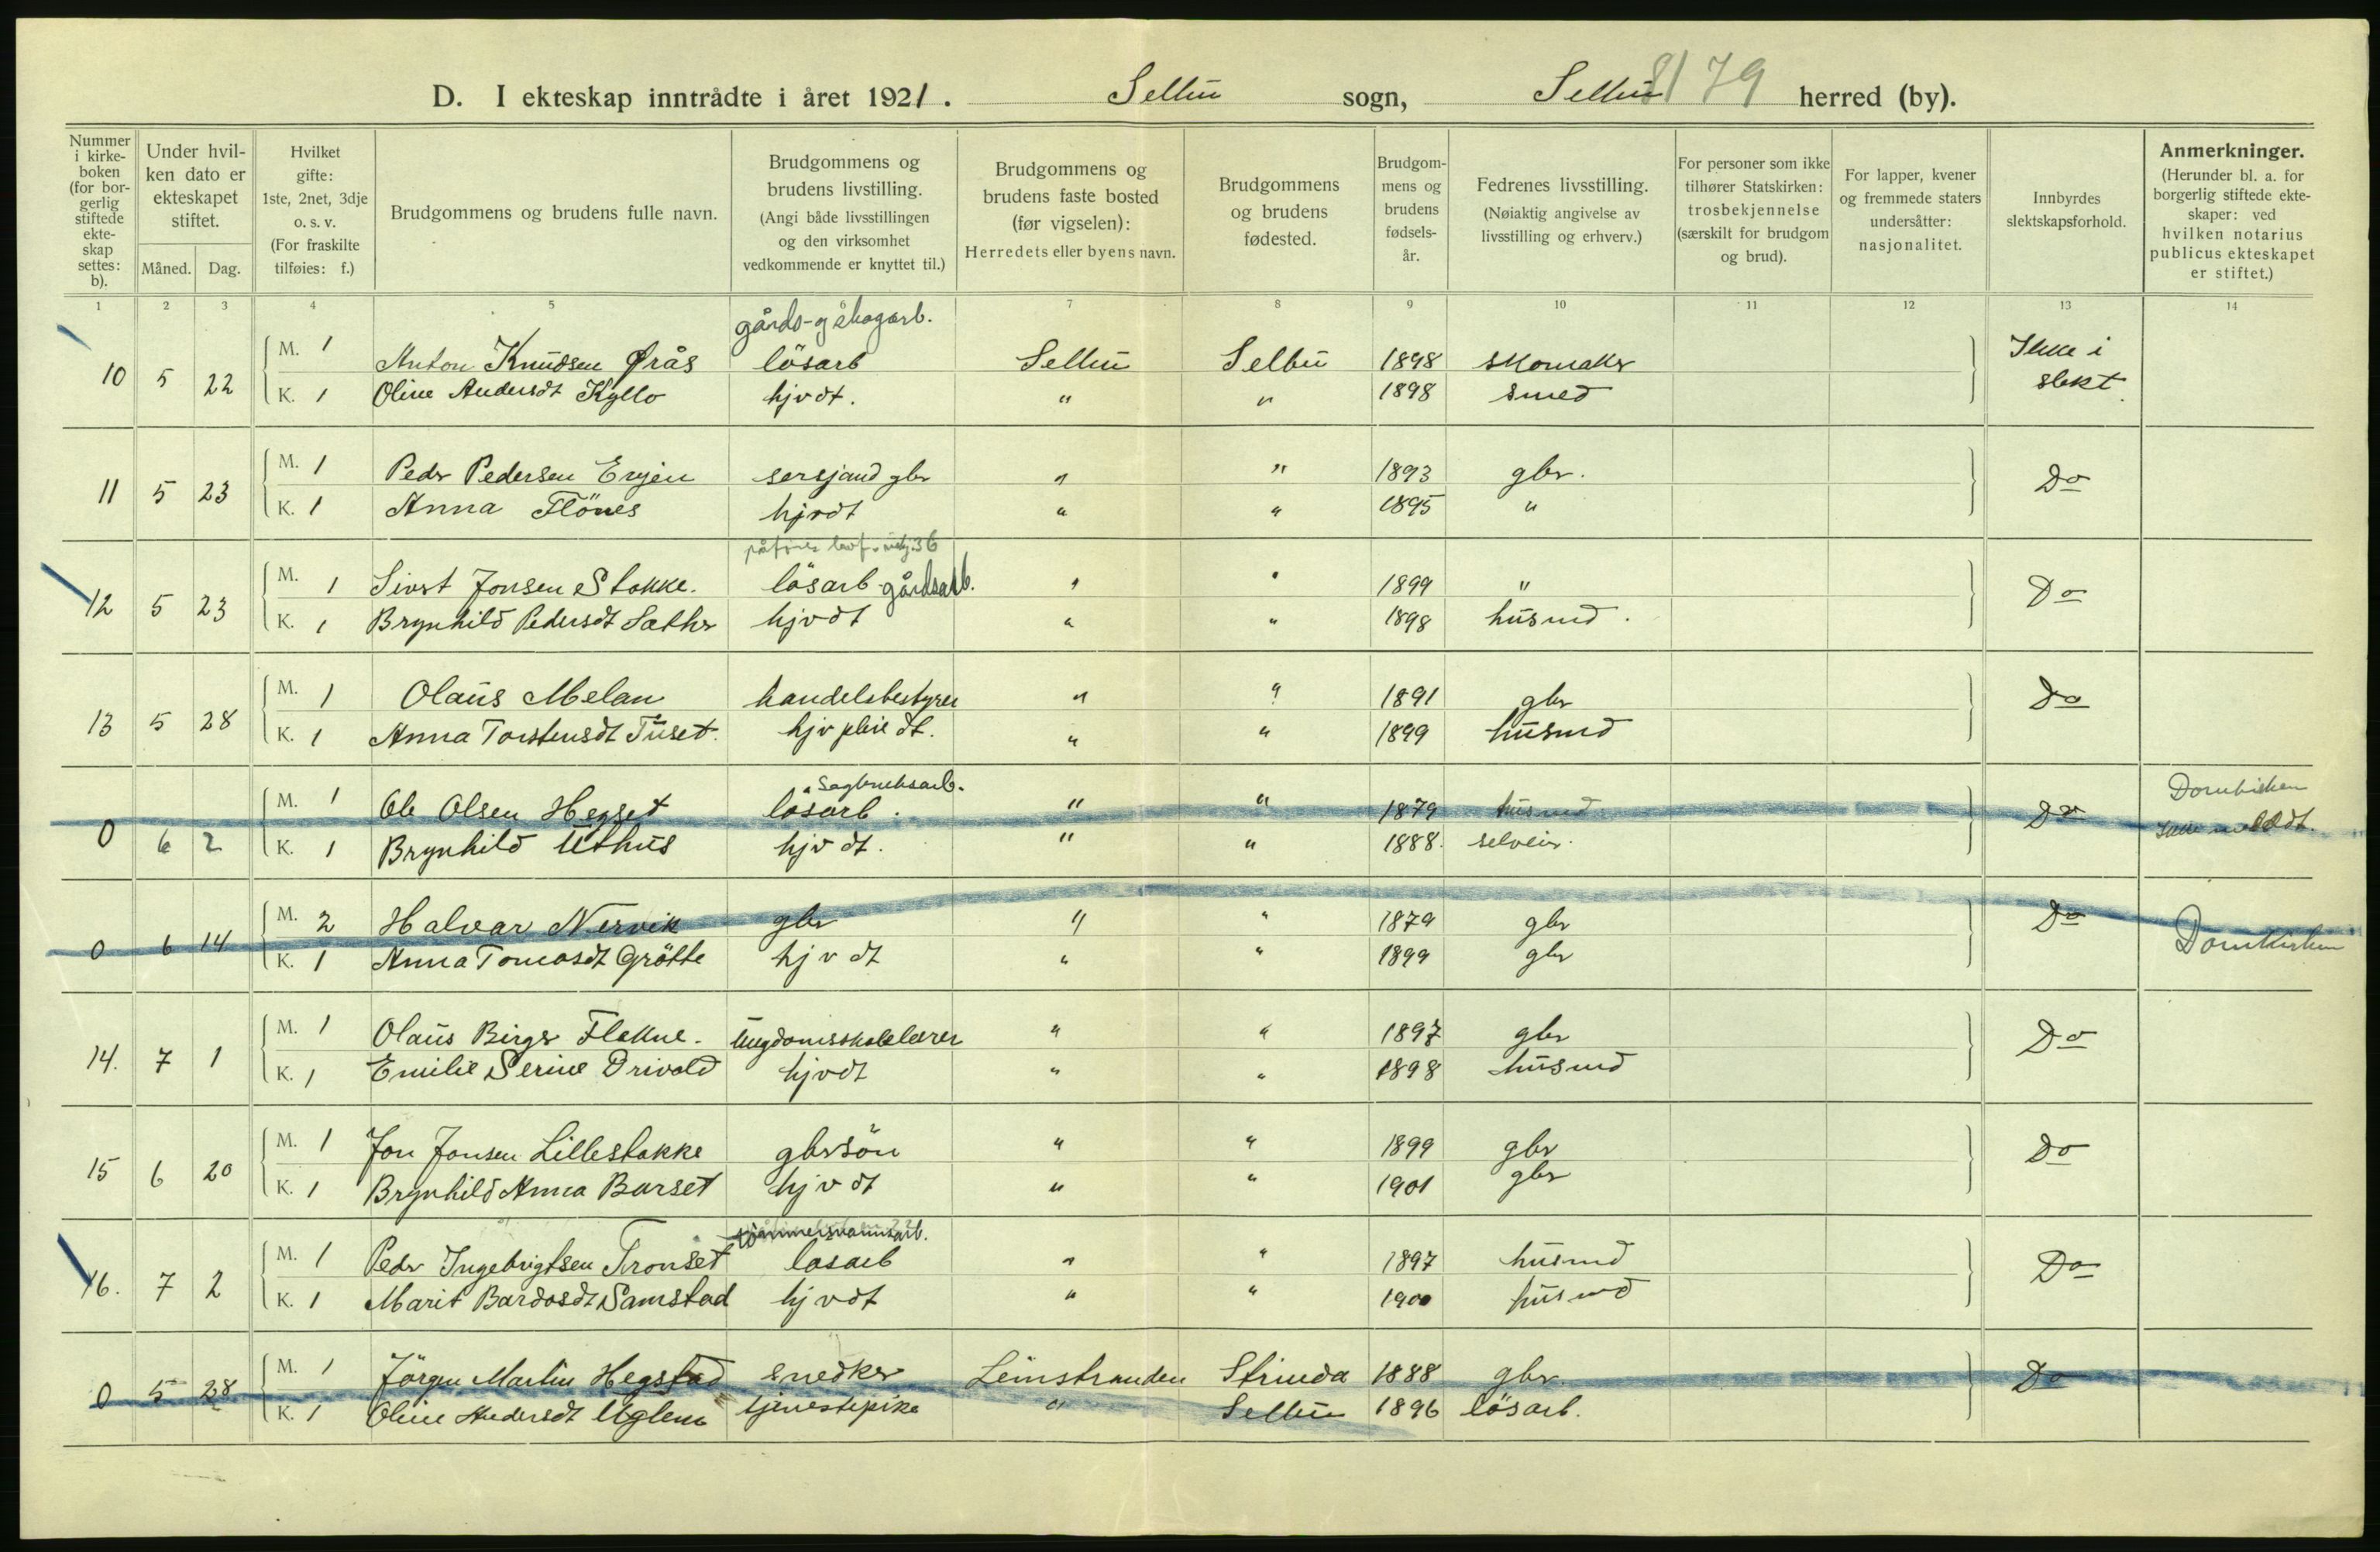 D. I ekteskap inntrådte i året 1921. Selbu sogn, Selbu herred (by).
8179
Nummer i kirkeboken (for borgerlig stiftede ekteskap settes: b).
Under hvilken dato er ekteskapet stiftet.
Måned. Dag.
Hvilket gifte: 1ste, 2net, 3dje o. s. v. (For fraskilte tilføies: f.)
Brudgommens og brudens fulle navn.
Brudgommens og brudens livstilling. (Angi både livsstillingen og den virksomhet vedkommende er knyttet til.)
Brudgommens og brudens faste bosted (før vigselen): Herredets eller byens navn.
Brudgommens og brudens fødested.
Brudgommens og brudens fødselsår.
Fedrenes livsstilling. (Nøiaktig angivelse av livsstilling og erhverv.)
For personer som ikke tilhører Statskirken: trosbekjennelse (særskilt for brudgom og brud).
For lapper, kvener og fremmede staters undersåtter: nasjonalitet.
Innbyrdes slektskapsforhold.
Anmerkninger. (Herunder bl. a. for borgerlig stiftede ekteskaper: ved hvilken notarius publicus ekteskapet er stiftet.)
1 2 3 4 5 6 7 8 9 10 11 12 13 14
gårds- og skogarb.
10 5 22 M. 1 Anton Knudsen Ørås lösarb Selbu Selbu 1898 skomaker Ikke i
K. 1 Oline Andersdt Kyllo hjvdt. " " 1898 smed slekt.
11 5 23 M. 1 Peder Pedersen Evjen sersjand gbr " " 1893 gbr. Do
K. 1 Anna Flönes hjvdt " " 1895 "
12 5 23 M. 1 Sivert Jonsen Stokke. lösarb gårdsarb. " " 1899 " Do
K. 1 Brynhild Pedersdt Sæther hjvdt " " 1898 husmd.
13 5 28 M. 1 Olaus Melan handelsbestyrer " " 1891 gbr Do
K. 1 Anna Torstensdt Tuset. hjv pleie dt. " " 1899 husmd
Sagbruksarb.
0 6 2 M. 1 Ole Olsen Hegset lösarb. " " 1879 husmd Do Domkirken
K. 1 Brynhild Uthus hjv dt. " " 1888. selveier. ikke meldt.
0 6 14 M. 2 Halvar Nervik gbr " " 1879 gbr Do Domkirken
K. 1 Anna Tomasdt Grötte hjv dt " " 1899 gbr
14. 7 1 M. 1 Olaus Birger Flakne. Ungdomsskolelærer " " 1897 gbr Do
K. 1 Emilie Serine Drivold hjvdt " " 1898 husmd
15 6 20 M. 1 Jon Jonsen Lillestokke gbrsön " " 1899 gbr Do
K. 1 Brynhild Anna Barset hjv dt " " 1901 gbr
16. 7 2 M. 1 Peder Ingebrigtsen Tronset lösarb " " 1897 husmd Do
K. 1 Marit Bardosdt Samstad hjvdt " " 1900 husmd
0 5 28 M. 1 Jörgen Martin Hegstad snedker Leinstranden Strinda 1888 gbr. Do
K. 1 Oline Andersdt Uglem tjenestepike " Selbu 1896 lösarb.